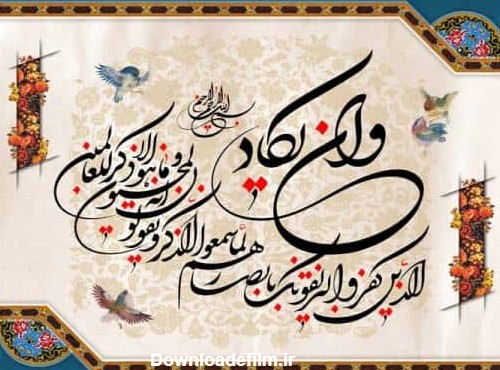 بسم الله الرحمن الرحیم
وان یکاد
الذین کفروا لیزلقونک بابصارهم
لما سمعوا الذکر و یقولون
انه لمجنون
و ما هو الا ذکر للعالمین
Downloadefilm.ir